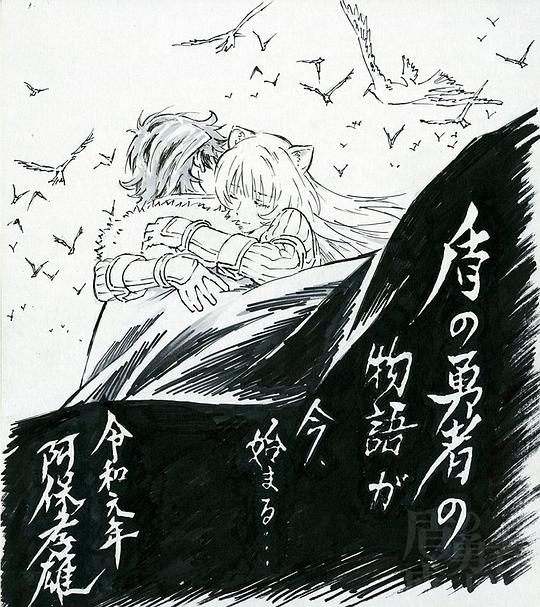 盾の勇者の
物語が
今、
始まる…
令和元年
阿保孝雄